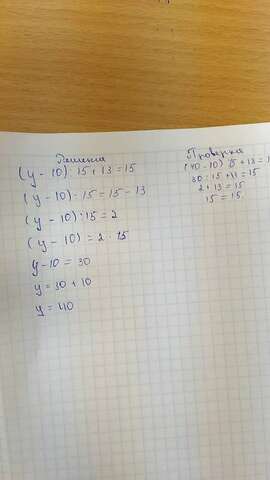 Решения
(y - 10) : 15 + 13 = 15
(y - 10) : 15 = 15 - 13
(y - 10) : 15 = 2
(y - 10) = 2 · 15
y - 10 = 30
y = 30 + 10
y = 40
Проверка
(40 - 10) : 15 + 13 = 1
30 : 15 + 13 = 15
2 + 13 = 15
15 = 15